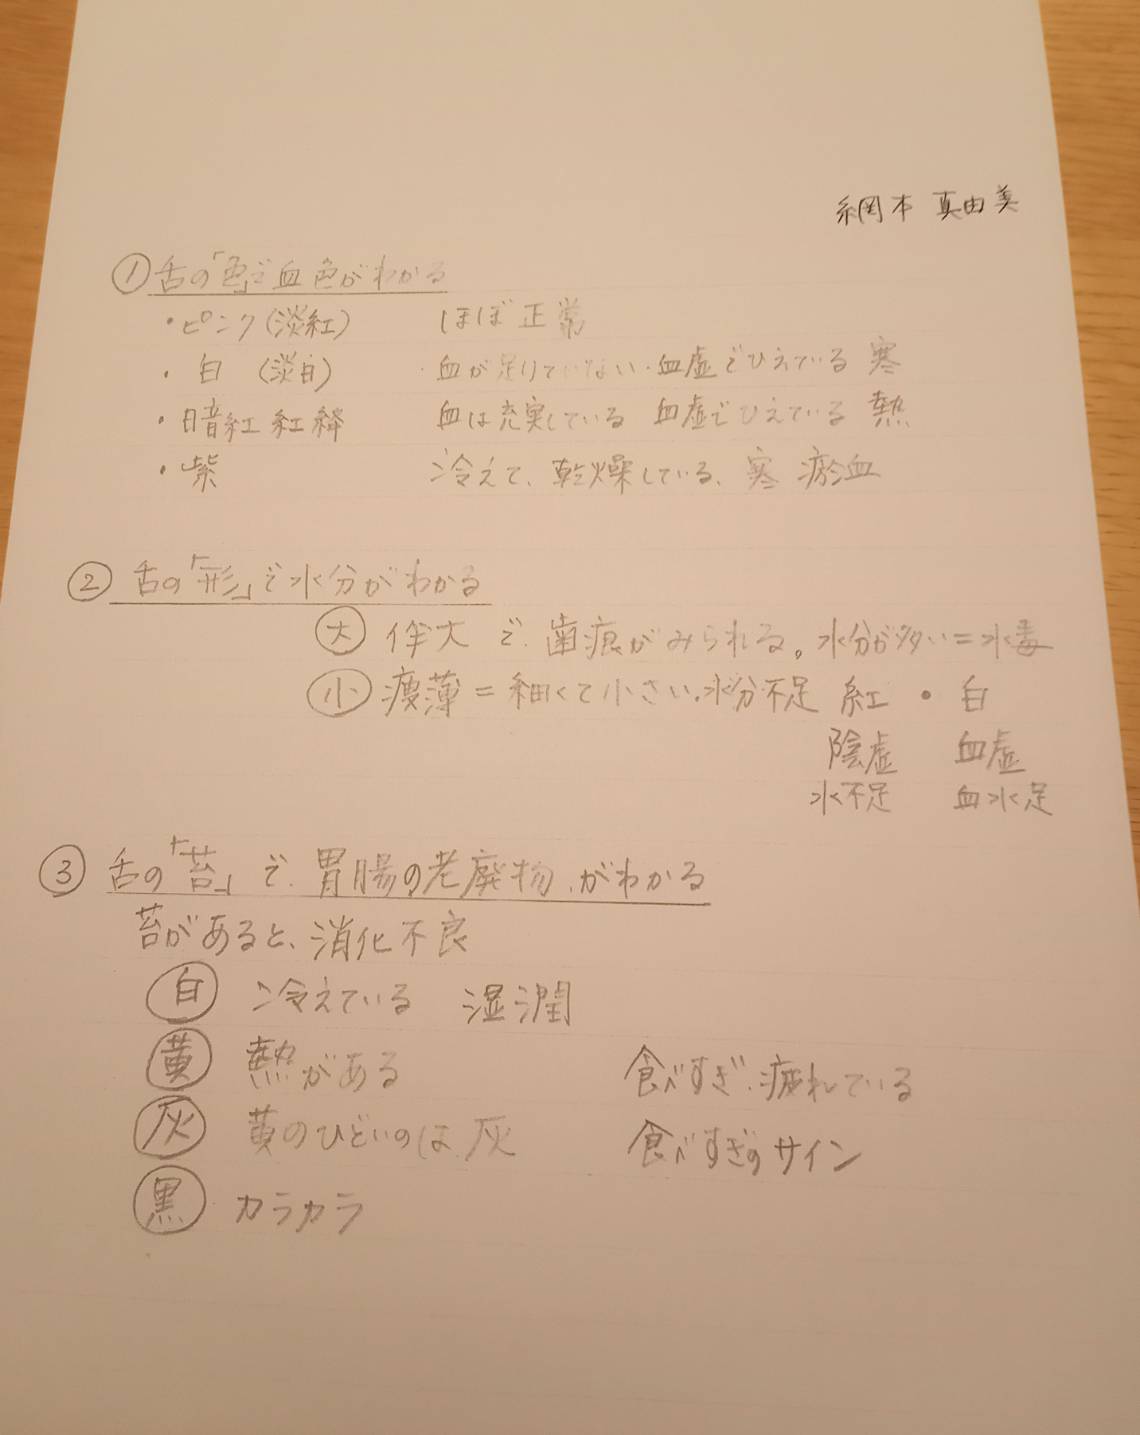 綱本 真由美
① 舌の「色」で血色がわかる
・ピンク(淡紅) ほぼ正常
・白 (淡白) ・血が足りていない・血虚でひえている 寒
・暗紅 紅絳 血は充実している 血虚でひえている 熱
・紫 冷えて、乾燥している、寒 瘀血
② 舌の「形」で水分がわかる
大 伴大 で、歯痕がみられる。水分が多い=水毒
小 痩薄=細くて小さい、水分不足 紅 ・ 白
陰虚 血虚
水不足 血水足
③ 舌の「苔」で、胃腸の老廃物、がわかる
苔があると、消化不良
白 冷えている 湿潤
黄 熱がある 食べすぎ、疲れている
灰 黄のひどいのは灰 食べすぎのサイン
黒 カラカラ